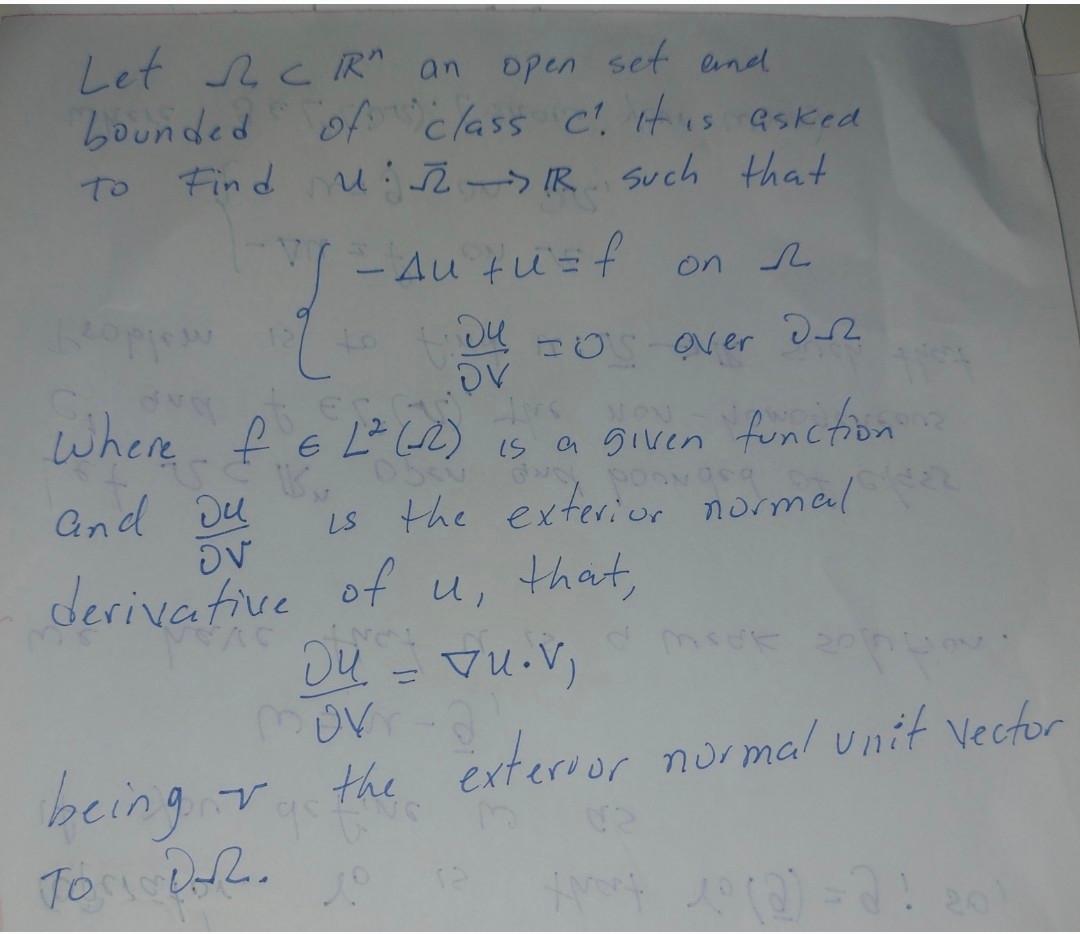 Let Ω ⊂ ℝⁿ an open set and
bounded of class C¹. It is asked
To Find u: Ω̄ → ℝ such that
{ -Δu + u = f on Ω
∂u/∂ν = 0 over ∂Ω
Where f ∈ L²(Ω) is a given function
and ∂u/∂ν is the exterior normal
derivative of u, that,
∂u/∂ν = ∇u·ν,
being ν the exterior normal unit vector
To ∂Ω.